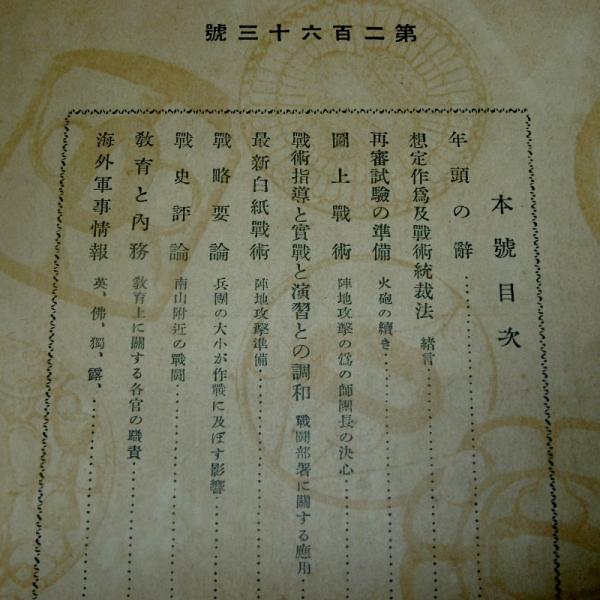 第二百六十三號
本號目次
年頭の辭
想定作爲及戰術統裁法 緖言
再審試驗の準備 火砲の續き
圖上戰術 陣地攻擊の爲の師團長の決心
戰術指導と實戰と演習との調和 戰鬪部署に關する應用
最新白紙戰術 陣地攻擊準備
戰略要論 兵團の大小が作戰に及ぼす影響
戰史評論 南山附近の戰鬪
敎育と內務 敎育上に關する各官の職責
海外軍事情報 英、佛、獨、露、